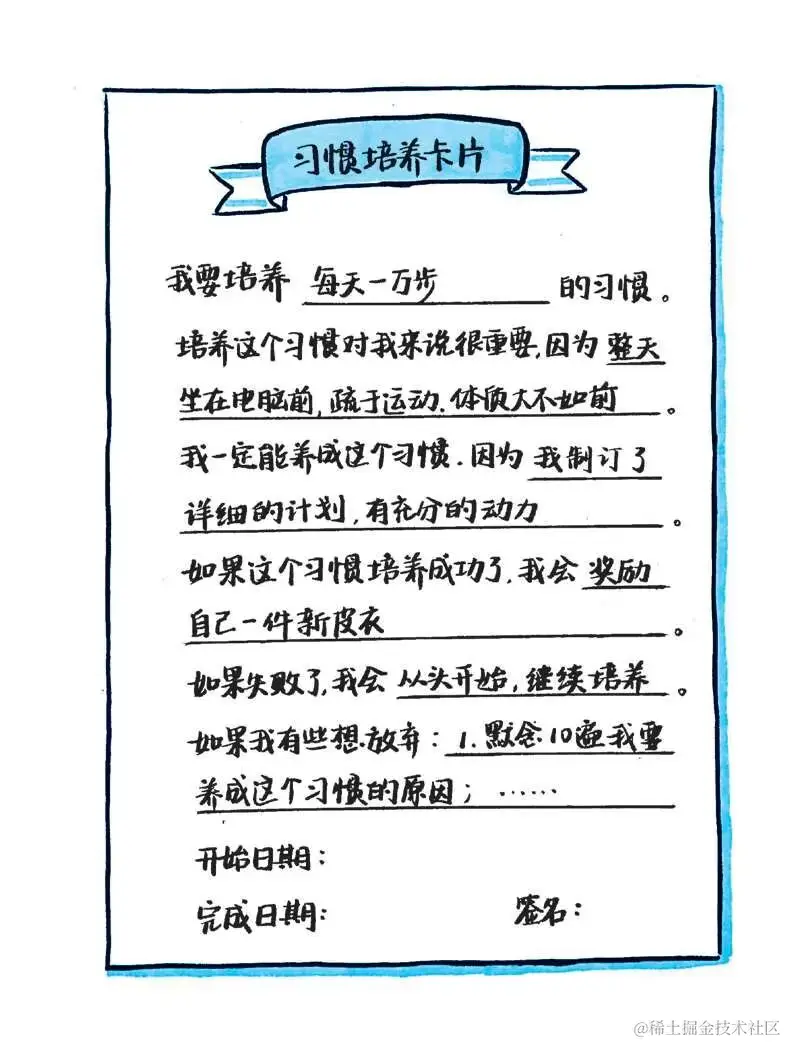 习惯培养卡片
我要培养 每天一万步 的习惯。
培养这个习惯对我来说很重要,因为 整天
坐在电脑前,疏于运动.体质大不如前。
我一定能养成这个习惯.因为 我制订了
详细的计划,有充分的动力。
如果这个习惯培养成功了,我会 奖励
自己一件新皮衣。
如果失败了,我会 从头开始,继续培养。
如果我有些想放弃:1.默念10遍我要
养成这个习惯的原因;……
开始日期:
完成日期: 签名:
@稀土掘金技术社区